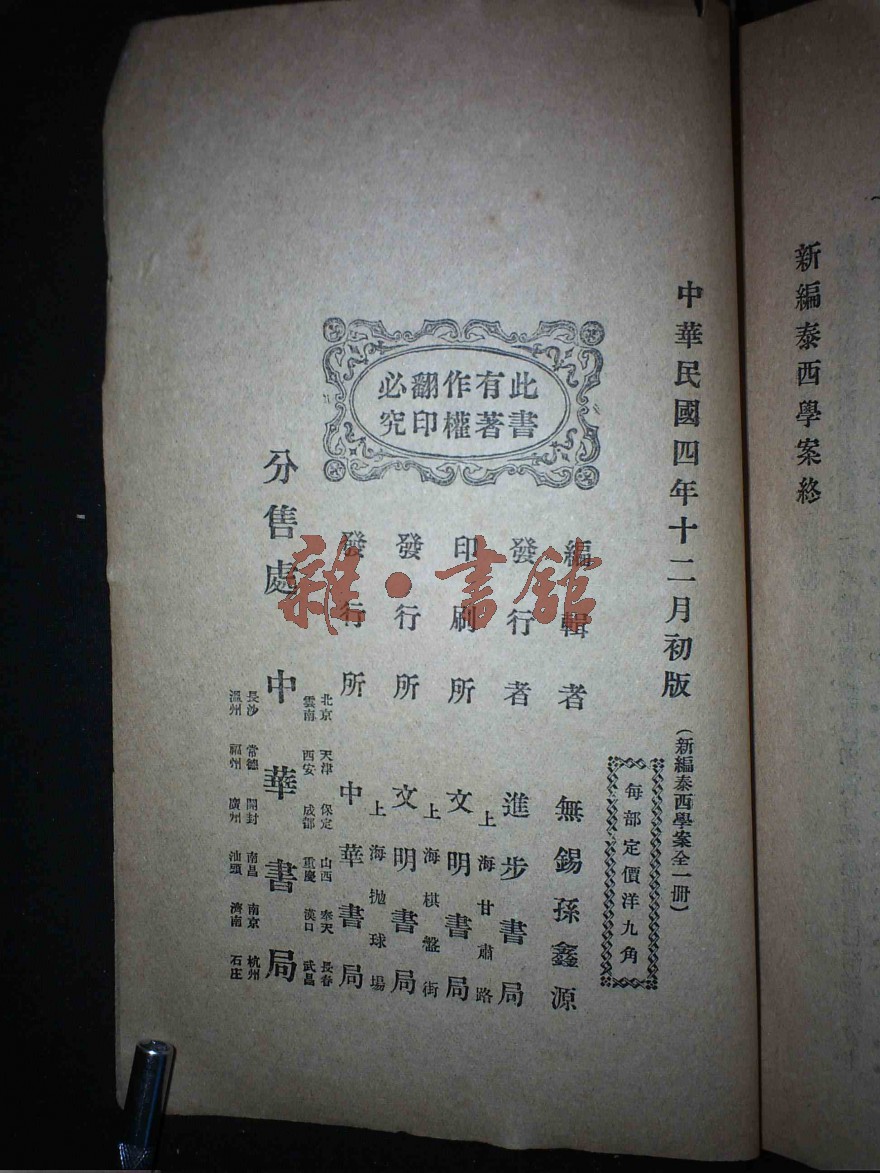 新編泰西學案終
中華民國四年十二月初版
(新編泰西學案全一冊)
每部定價洋九角
此書
有著
作權
翻印
必究
編輯者 無錫孫鑫源
發行者 進步書局
上海甘肅路
印刷所 文明書局
上海棋盤街
發行所 文明書局
上海拋球場
發行所 中華書局
北京 天津 保定 山西 奉天 長春
雲南 西安 成都 重慶 漢口 武昌
分售處 中華書局
長沙 常德 開封 南昌 南京 杭州
溫州 福州 廣州 汕頭 濟南 石庄
雜·書館